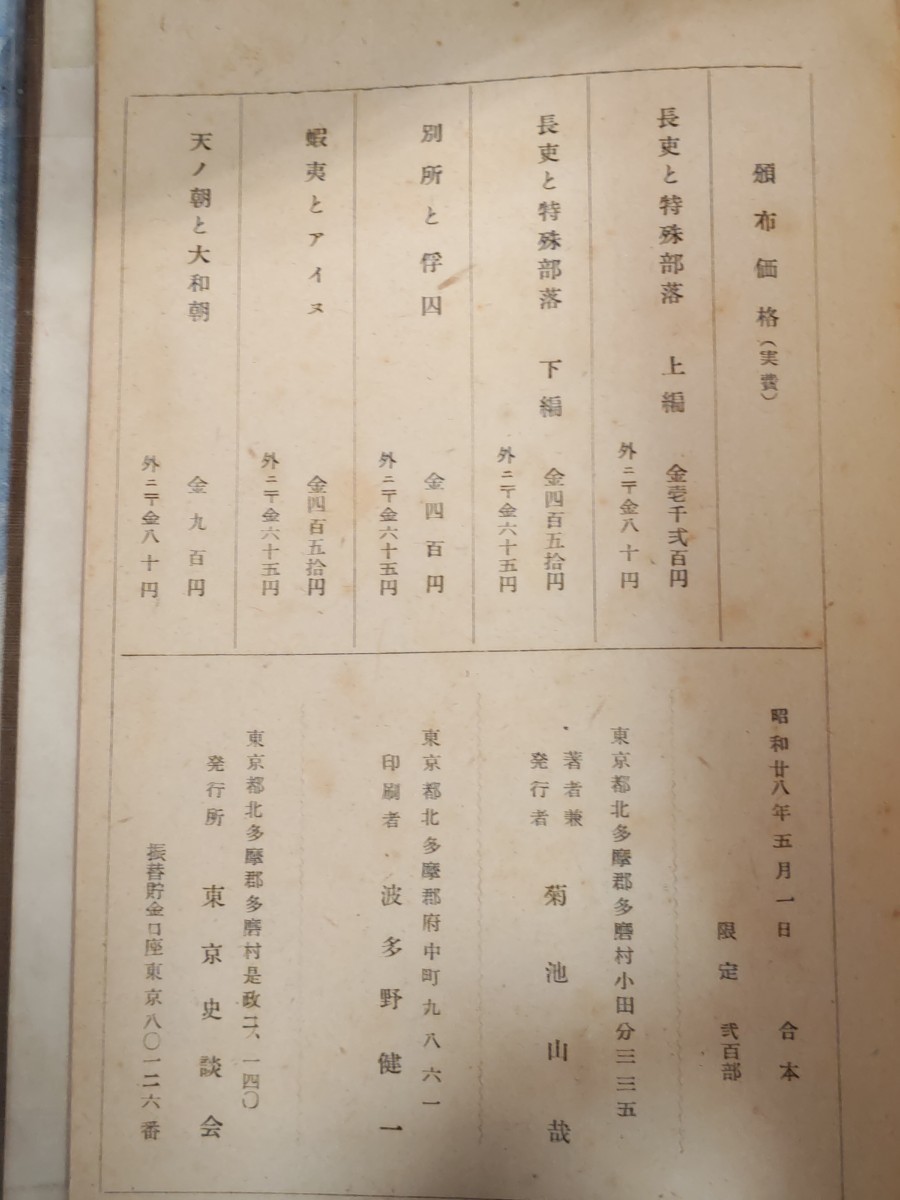 頒布価格（実費）
長吏と特殊部落　上編
金壱千弐百円
外ニ〒金八十円
長吏と特殊部落　下編
金四百五拾円
外ニ〒金六十五円
別所と俘囚
金四百円
外ニ〒金六十五円
蝦夷とアイヌ
金四百五拾円
外ニ〒金六十五円
天ノ朝と大和朝
金九百円
外ニ〒金八十円
昭和廿八年五月一日　合本
限定　弐百部
東京都北多摩郡多磨村小田分三三五
著者兼
発行者　菊池山哉
東京都北多摩郡府中町九八六一
印刷者　波多野健一
東京都北多摩郡多磨村是政二ス、一四〇
発行所　東京史談会
振替貯金口座東京八〇一二六番